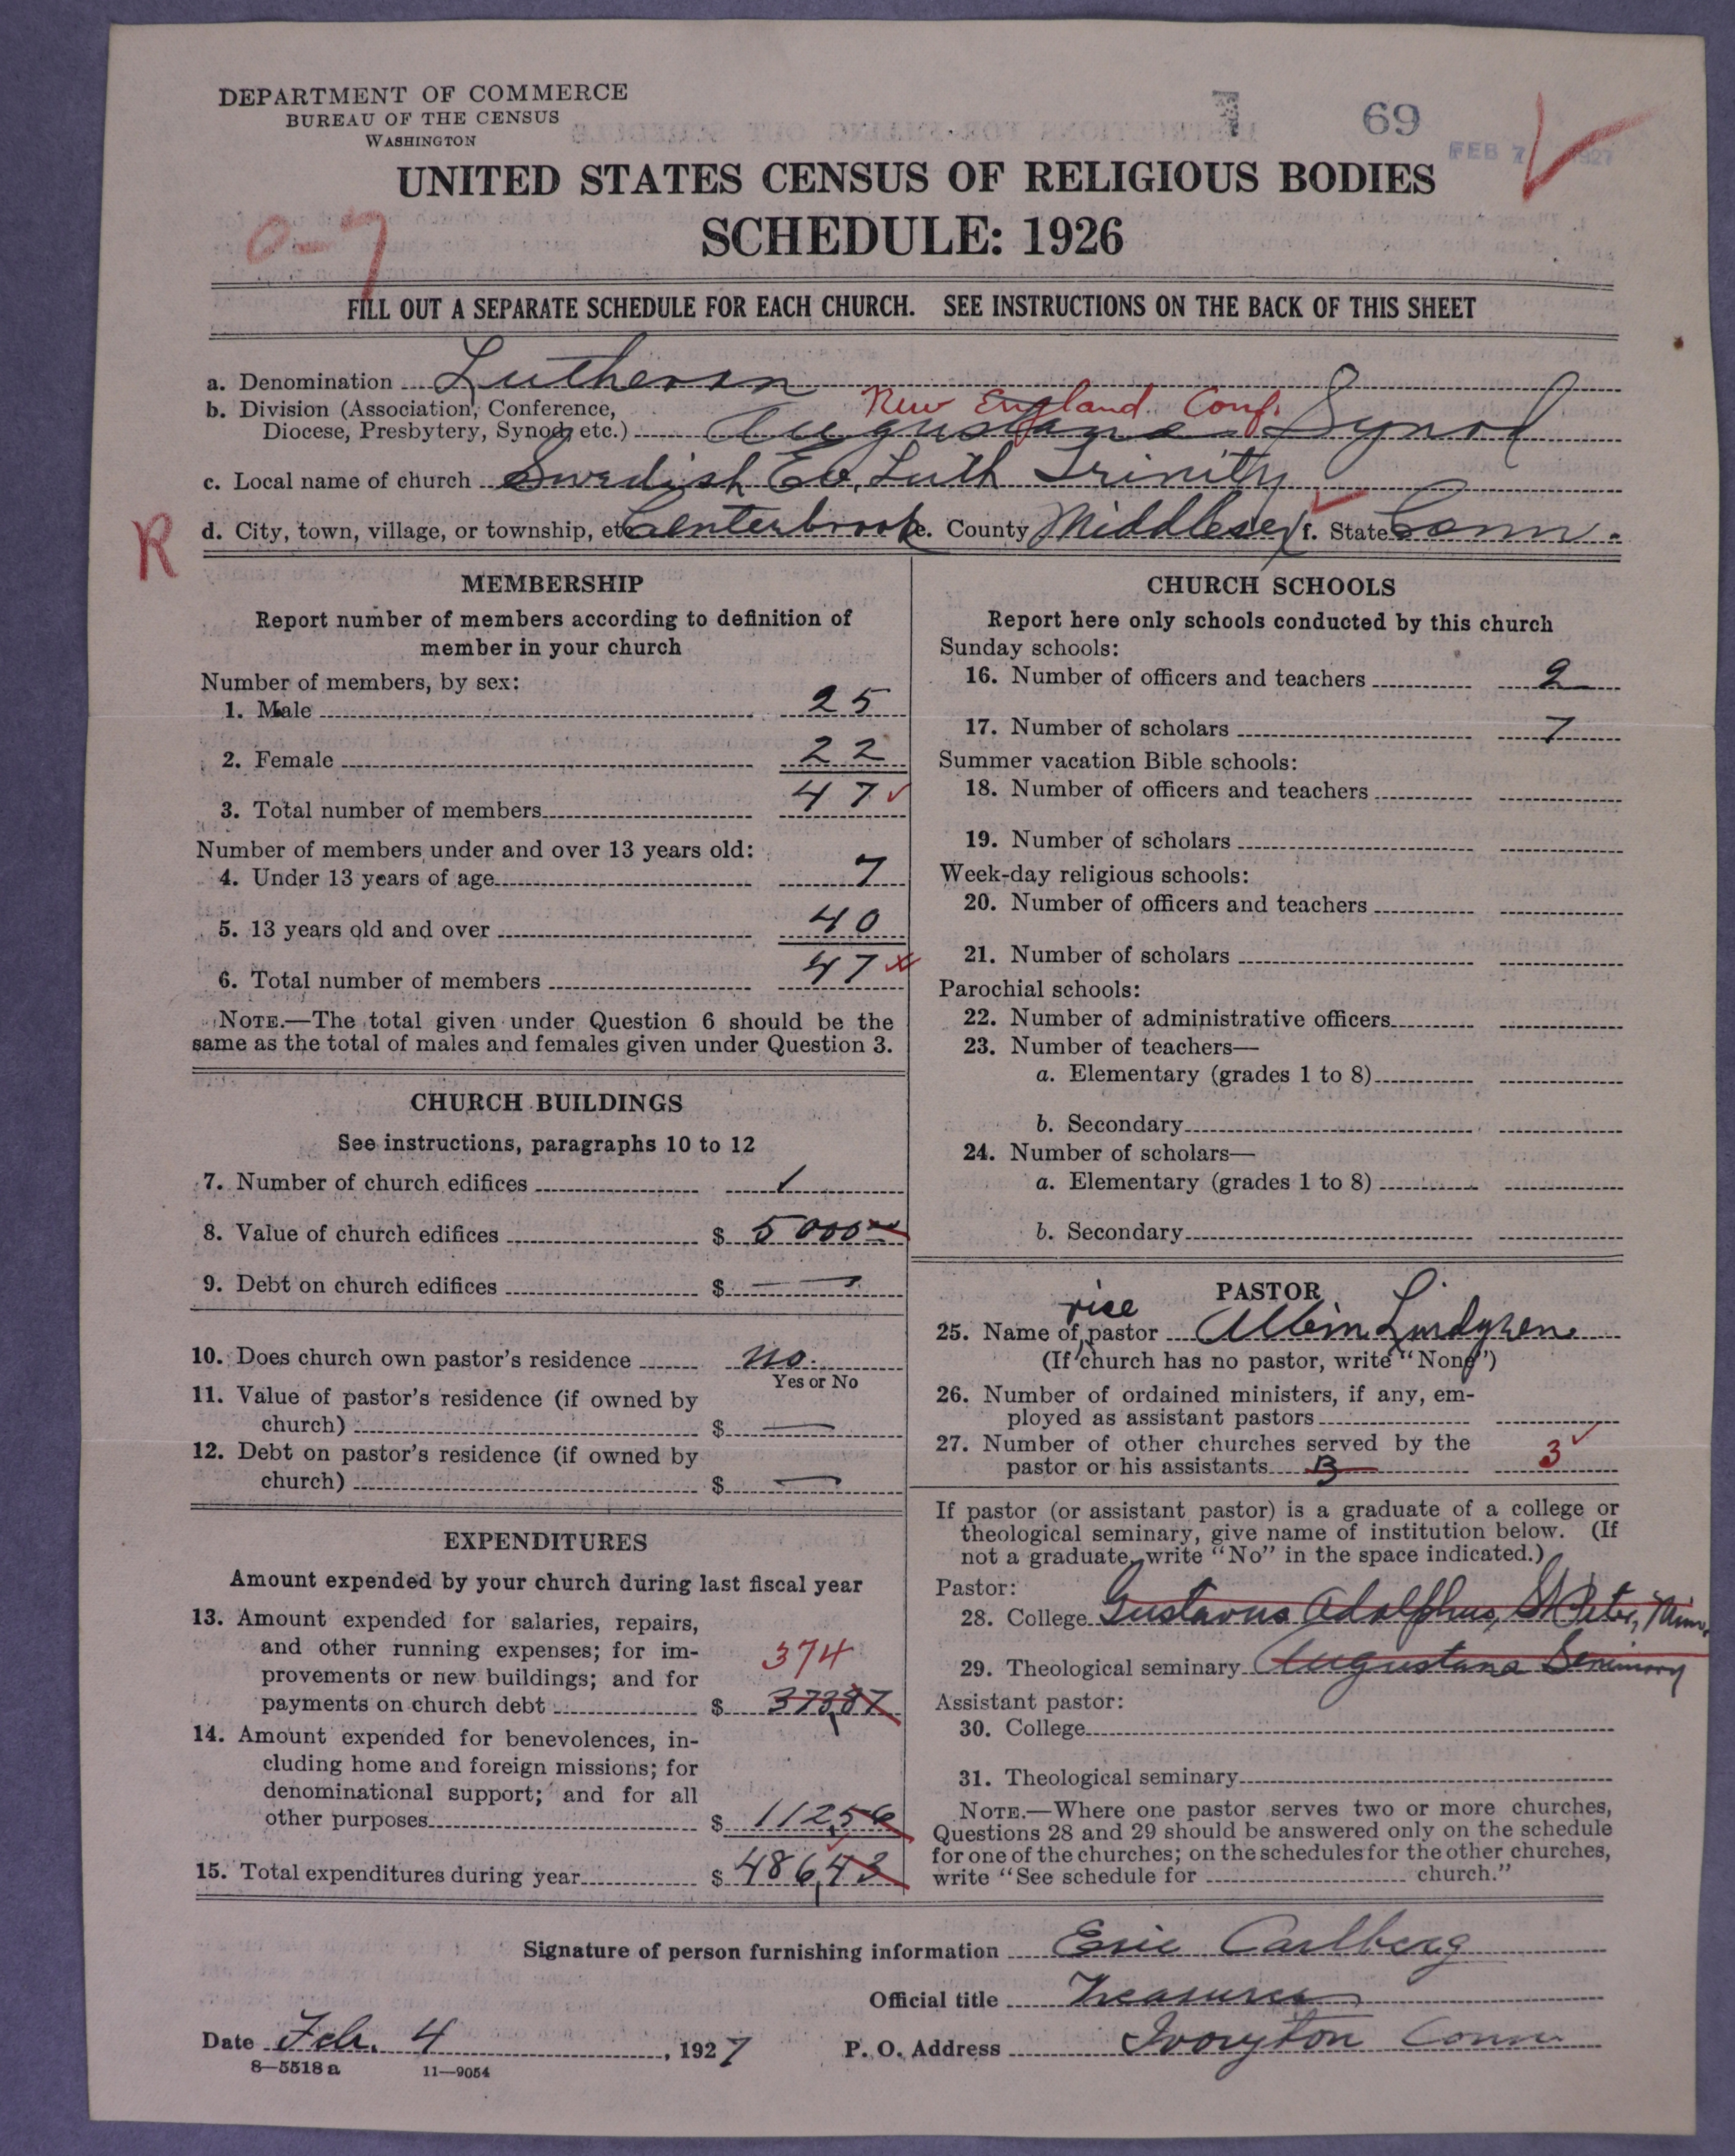 DEPARTMENT OF COMMERCE
BUREAU OF THE CENSUS
WASHINGTON
1
69
FEB 7 1927
UNITED STATES CENSUS OF RELIGIOUS BODIES
SCHEDULE: 1926
0-7
FILL OUT A SEPARATE SCHEDULE FOR EACH CHURCH. SEE INSTRUCTIONS ON THE BACK OF THIS SHEET
a. Denomination Lutheran
New England Conf.
b. Division (Association, Conference,
Diocese, Presbytery, Synod, etc.) Augustana Synod
c. Local name of church Swedish Ev. Luth Trinity
R d. City, town, village, or township, etc. Centerbrook e. County Middlesex f. State Conn.
MEMBERSHIP
Report number of members according to definition of
member in your church
Number of members, by sex:
1. Male 25
2. Female 22
3. Total number of members 47
Number of members under and over 13 years old:
4. Under 13 years of age 7
5. 13 years old and over 40
6. Total number of members 47
NOTE.—The total given under Question 6 should be the
same as the total of males and females given under Question 3.
CHURCH BUILDINGS
See instructions, paragraphs 10 to 12
7. Number of church edifices 1
8. Value of church edifices $ 5000
9. Debt on church edifices $ —
10. Does church own pastor's residence no.
Yes or No
11. Value of pastor's residence (if owned by
church) $ —
12. Debt on pastor's residence (if owned by
church) $ —
EXPENDITURES
Amount expended by your church during last fiscal year
13. Amount expended for salaries, repairs,
and other running expenses; for im-
provements or new buildings; and for
374
payments on church debt $ 373,87
14. Amount expended for benevolences, in-
cluding home and foreign missions; for
denominational support; and for all
other purposes $ 112,56
15. Total expenditures during year $ 486,43
CHURCH SCHOOLS
Report here only schools conducted by this church
Sunday schools:
16. Number of officers and teachers 2
17. Number of scholars 7
Summer vacation Bible schools:
18. Number of officers and teachers
19. Number of scholars
Week-day religious schools:
20. Number of officers and teachers
21. Number of scholars
Parochial schools:
22. Number of administrative officers
23. Number of teachers—
a. Elementary (grades 1 to 8)
b. Secondary
24. Number of scholars—
a. Elementary (grades 1 to 8)
b. Secondary
PASTOR
vice
25. Name of pastor Albin Lindgren
(If church has no pastor, write "None")
26. Number of ordained ministers, if any, em-
ployed as assistant pastors
27. Number of other churches served by the
pastor or his assistants 3
If pastor (or assistant pastor) is a graduate of a college or
theological seminary, give name of institution below. (If
not a graduate, write "No" in the space indicated.)
Pastor:
28. College Gustavus Adolphus, St Peter, Minn.
29. Theological seminary Augustana Seminary
Assistant pastor:
30. College
31. Theological seminary
NOTE.—Where one pastor serves two or more churches,
Questions 28 and 29 should be answered only on the schedule
for one of the churches; on the schedules for the other churches,
write "See schedule for church."
Signature of person furnishing information Eric Carlberg
Official title Treasurer
Date Feb. 4, 1927 P. O. Address Ivoryton Conn.
8—5518 a 11—9054